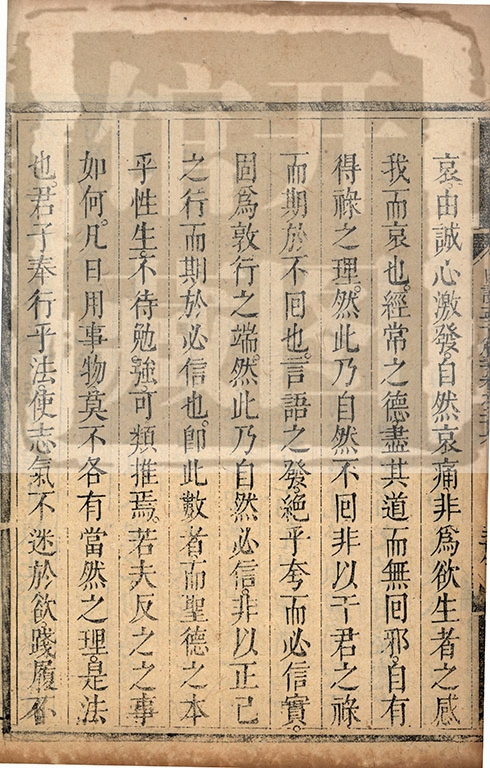 哀由誠心激發自然哀痛非爲欲生者之感
我而哀也經常之德盡其道而無回邪自有
得祿之理然此乃自然不回非以干君之祿
而期於不回也言語之發絶乎夸而必信實
固爲敦行之端然此乃自然必信非以正己
之行而期於必信也卽此數者而聖德之本
乎性生不待勉強可類推焉若夫反之之事
如何凡日用事物莫不各有當然之理是法
也君子奉行乎法使志氣不迷於欲踐履不